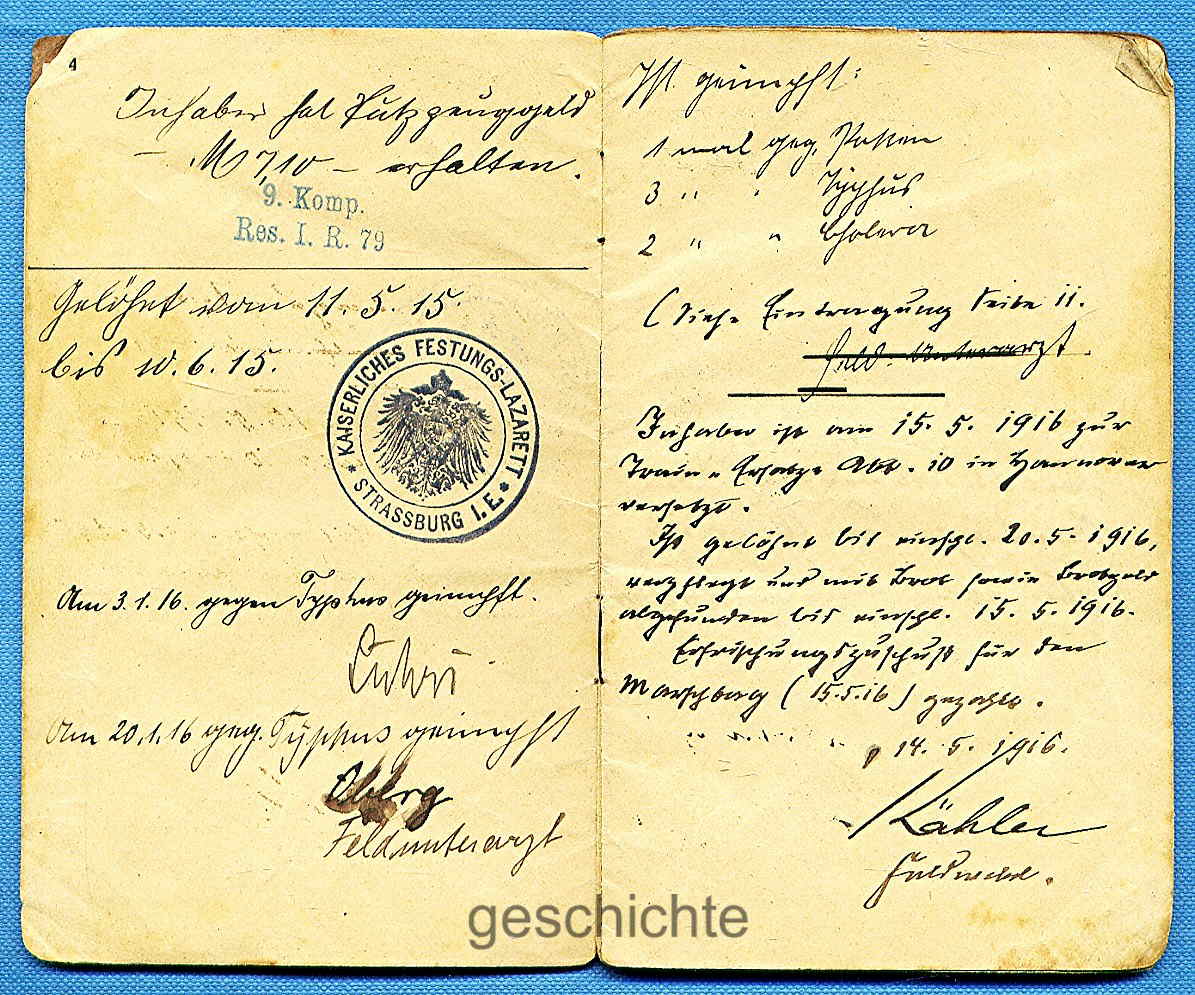 4
Inhaber hat Putzzeuggeld
– M 7,10 – erhalten.
9. Komp.
Res. I. R. 79
Gelöhnt vom 11. 5. 15.
bis 10. 6. 15.
KAISERLICHES FESTUNGS-LAZARETT
* STRASSBURG I. E. *
Am 3.1.16. gegen Typhus geimpft.
Am 20.1.16 geg. Typhus geimpft
Feldunterarzt
Ist geimpft:
1 mal geg. Pocken
3 " " Typhus
2 " " Cholera
(Siehe Eintragung Seite 11.
Feld. Unterarzt.
Inhaber ist am 15. 5. 1916 zur
Train-Ersatz-Abt. 10 in Hannover
versetzt.
Ist gelöhnt bis einschl. 20. 5. 1916,
verpflegt und mit Brot sowie Brotgeld
abgefunden bis einschl. 15. 5. 1916.
Erfrischungszuschuß für den
Marschtag (15.5.16) gezahlt.
14. 5. 1916.
Kähler
Feldwebel.
geschichte